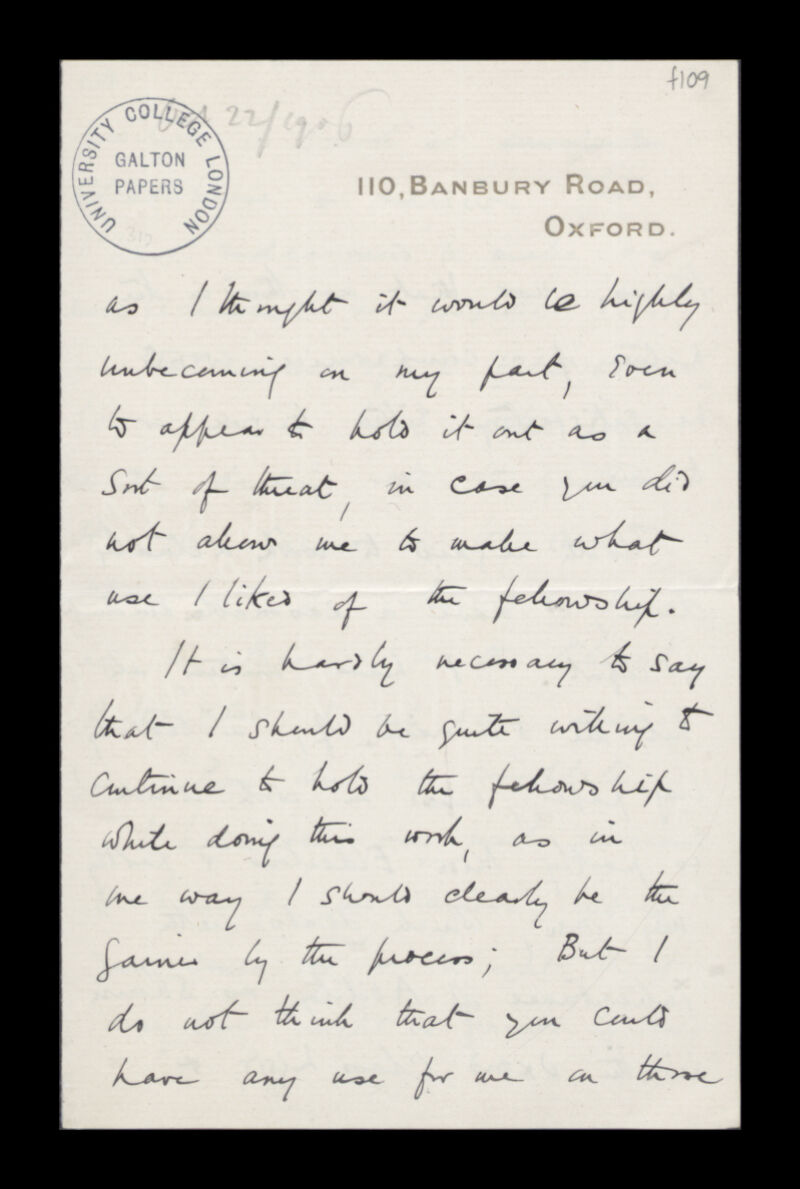 f109
Oct 22/1906
UNIVERSITY COLLEGE LONDON
GALTON
PAPERS
312
110, BANBURY ROAD,
OXFORD.
as I thought it would be highly
unbecoming on my part, even
to appear to hold it out as a
sort of threat, in case you did
not allow me to make what
use I liked of the fellowship.
It is hardly necessary to say
that I should be quite willing to
continue to hold the fellowship
while doing this work, as in
one way I should clearly be the
gainer by the process; But I
do not think that you could
have any use for me on those